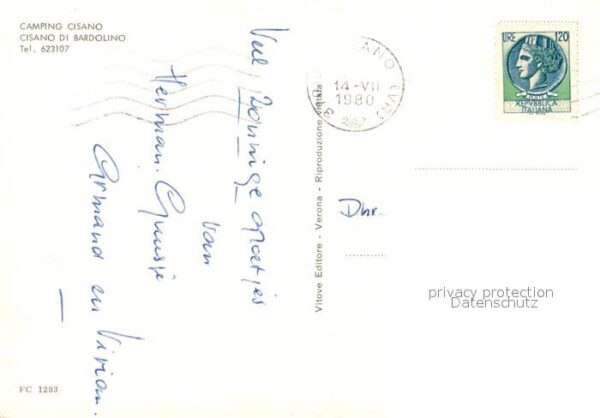 CAMPING CISANO
CISANO DI BARDOLINO
Tel. 623107
Vele zonnige groetjes
van
Herman. Guusje
Armand en Vivian.
FC 1293
Vitove Editore - Verona - Riproduzione vietata
14-VII
1980
(VR)
LIRE 120
REPUBBLICA
ITALIANA
Dhr.
privacy protection
Datenschutz